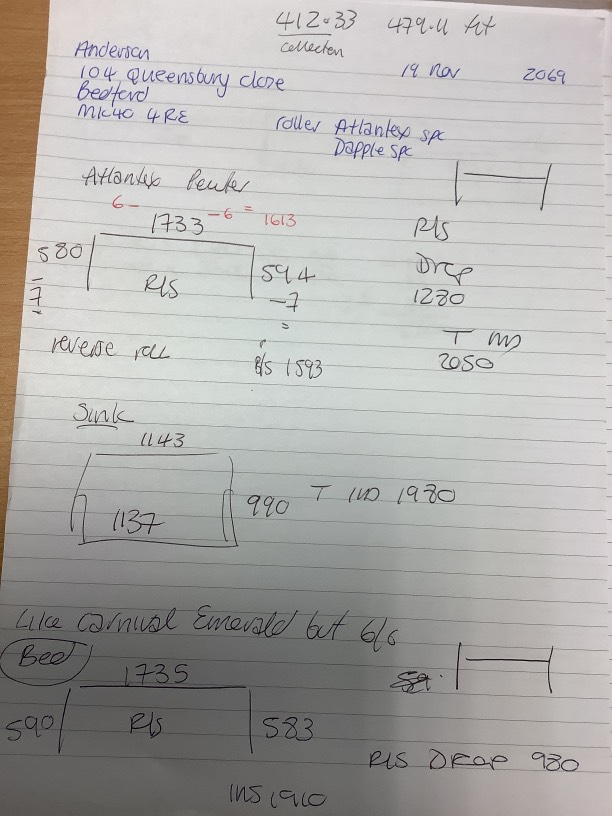 412.33 479.11 fit
collection
Anderson
19 Nov 2069
104 Queensbury Close
Bedford
MK40 4RE
roller Atlantex spc
Dapple spc
Atlantex Pewter
6-
1733 -6 = 1613
R/s
580
594
R/s
-7
=
-
7
-
Drop
1280
T IND
2050
reverse roll
B/s 1593
Sink
1143
990 T IND 1980
1137
Like Carnival Emerald but b/o
Bed
1735
590
R/s
583
R/s DROP 980
INS 1910